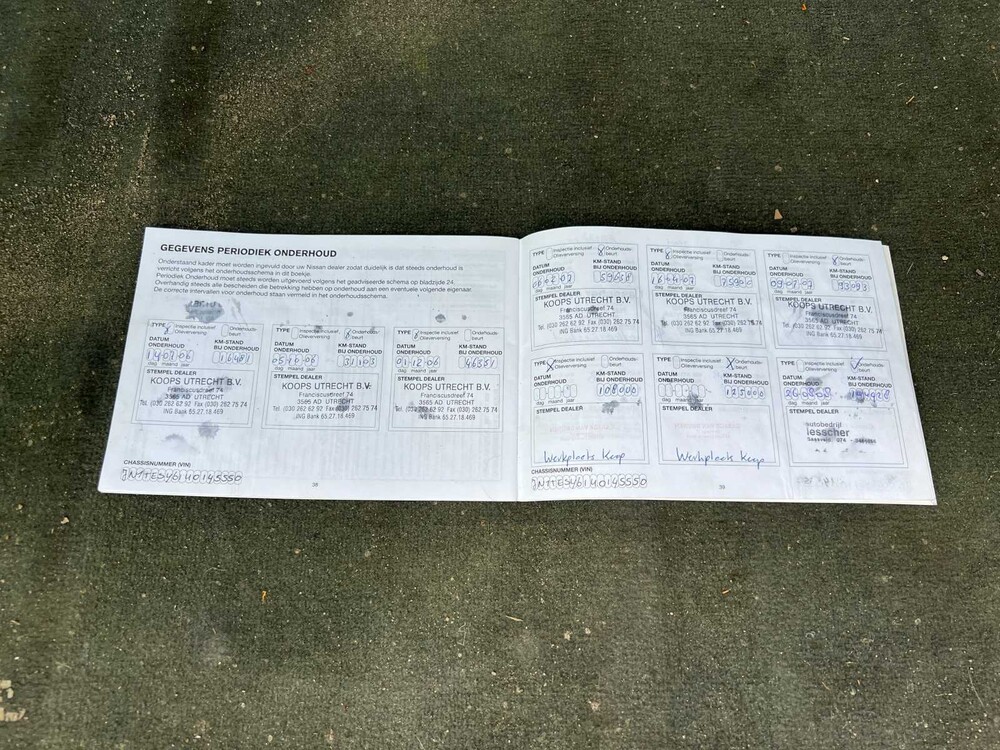 GEGEVENS PERIODIEK ONDERHOUD
Onderstaand kader moet worden ingevuld door uw Nissan dealer zodat duidelijk is dat steeds onderhoud is
verricht volgens het onderhoudsschema in dit boekje.
Periodiek Onderhoud moet steeds worden uitgevoerd volgens het geadviseerde schema op bladzijde 24.
Overhandig steeds alle bescheiden die betrekking hebben op onderhoud aan een eventuele volgende eigenaar.
De correcte intervallen voor onderhoud staan vermeld in het onderhoudsschema.
TYPE Inspectie inclusief Olieverversing Onderhouds-beurt
DATUM ONDERHOUD KM-STAND BIJ ONDERHOUD
dag maand jaar
STEMPEL DEALER
KOOPS UTRECHT B.V.
Franciscusdreef 74
3565 AD UTRECHT
Tel. (030 262 62 92 Fax (030) 262 75 74
ING Bank 65.27.18.469
TYPE Inspectie inclusief Olieverversing Onderhouds-beurt
DATUM ONDERHOUD KM-STAND BIJ ONDERHOUD
05 10 06 31103
dag maand jaar
STEMPEL DEALER
KOOPS UTRECHT B.V.
Franciscusdreef 74
3565 AD UTRECHT
Tel. (030 262 62 92 Fax (030) 262 75 74
ING Bank 65.27.18.469
TYPE Inspectie inclusief Olieverversing Onderhouds-beurt
DATUM ONDERHOUD KM-STAND BIJ ONDERHOUD
01 12 06
dag maand jaar
STEMPEL DEALER
KOOPS UTRECHT B.V.
Franciscusdreef 74
3565 AD UTRECHT
Tel. (030 262 62 92 Fax (030) 262 75 74
ING Bank 65.27.18.469
CHASSISNUMMER (VIN)
38
TYPE Inspectie inclusief Olieverversing Onderhouds-beurt
DATUM ONDERHOUD KM-STAND BIJ ONDERHOUD
dag maand jaar
STEMPEL DEALER
KOOPS UTRECHT B.V.
Franciscusdreef 74
3565 AD UTRECHT
Tel. (030 262 62 92 Fax (030) 262 75 74
ING Bank 65.27.18.469
TYPE Inspectie inclusief Olieverversing Onderhouds-beurt
DATUM ONDERHOUD KM-STAND BIJ ONDERHOUD
dag maand jaar
STEMPEL DEALER
KOOPS UTRECHT B.V.
Franciscusdreef 74
3565 AD UTRECHT
Tel. (030 262 62 92 Fax (030) 262 75 74
ING Bank 65.27.18.469
TYPE Inspectie inclusief Olieverversing Onderhouds-beurt
DATUM ONDERHOUD KM-STAND BIJ ONDERHOUD
93093
dag maand jaar
STEMPEL DEALER
KOOPS UTRECHT B.V.
Franciscusdreef 74
3565 AD UTRECHT
Tel. (030 262 62 92 Fax (030) 262 75 74
ING Bank 65.27.18.469
TYPE Inspectie inclusief Olieverversing Onderhouds-beurt
DATUM ONDERHOUD KM-STAND BIJ ONDERHOUD
108000
dag maand jaar
STEMPEL DEALER
Werkplaats Koop
TYPE Inspectie inclusief Olieverversing Onderhouds-beurt
DATUM ONDERHOUD KM-STAND BIJ ONDERHOUD
125000
dag maand jaar
STEMPEL DEALER
Werkplaats Koop
TYPE Inspectie inclusief Olieverversing Onderhouds-beurt
DATUM ONDERHOUD KM-STAND BIJ ONDERHOUD
dag maand jaar
STEMPEL DEALER
autobedrijf
lesscher
CHASSISNUMMER (VIN)
39